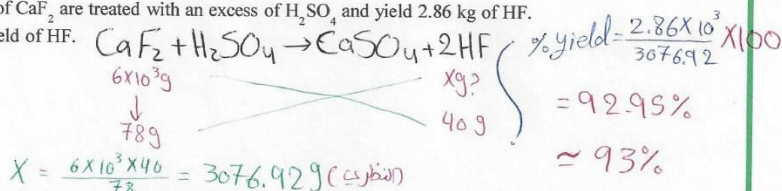 of CaF₂ are treated with an excess of H₂SO₄ and yield 2.86 kg of HF.
eld of HF.
CaF₂ + H₂SO₄ → CaSO₄ + 2HF
6×10³g xg?
↓
78g 40g
X = 6×10³×40 / 78 = 3076.92g (النظري)
% yield = 2.86×10³ / 3076.92 ×100
= 92.95%
≃ 93%